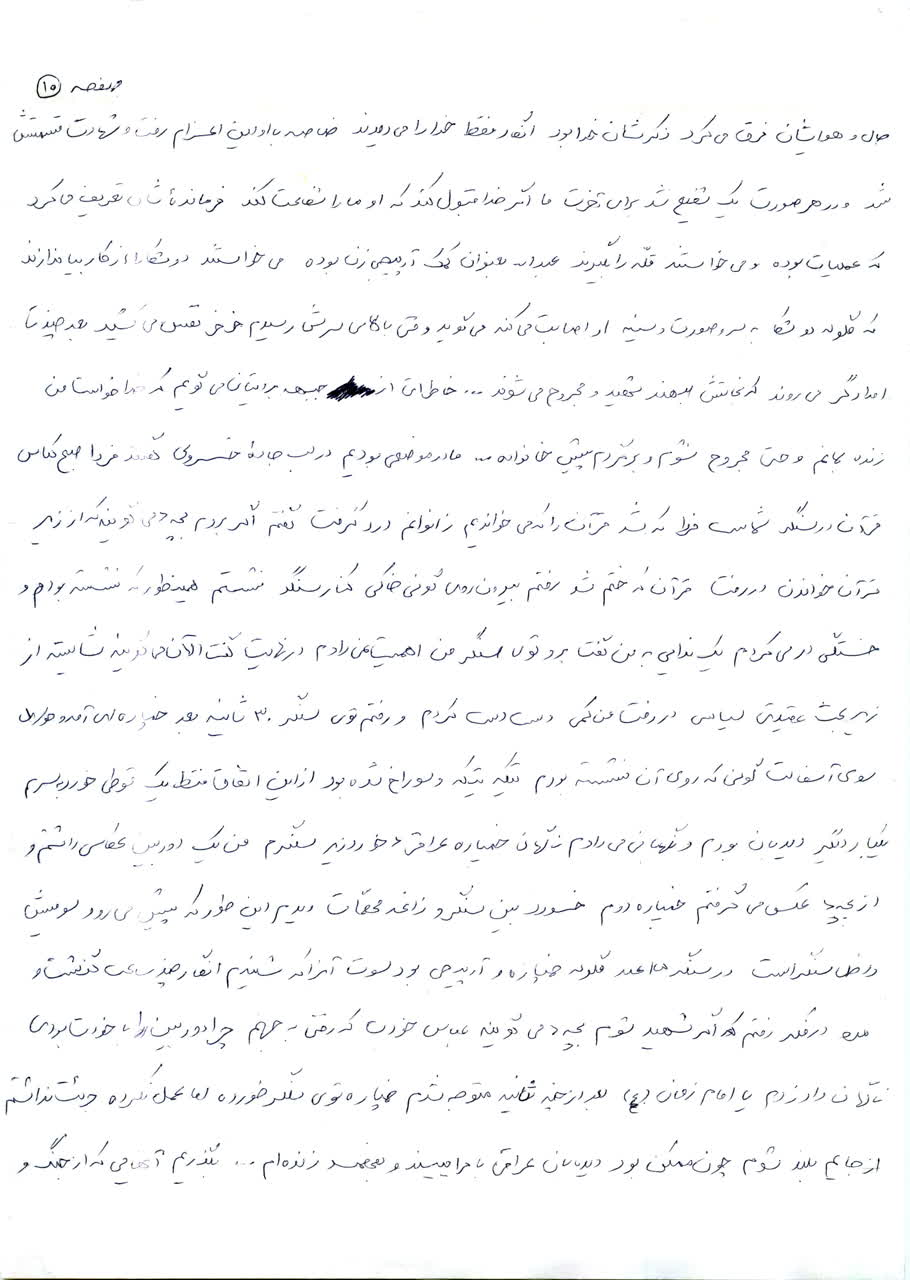 صفحه ۱۵
حال و هوایشان فرق می کرد ذکرشان خدا بود انگار فقط خدا را می دیدند خلاصه با اولین اعزام رفت و شهادت قسمتش
شد و در هر صورت یک شفیع شد برای آخرت ما اگر خدا قبول کند که او ما را شفاعت کند فرمانده شان تعریف می کرد
که عملیات بوده و می خواستند قله را بگیرند عبداله بعنوان کمک آرپیجی زن بوده می خواستند دوشکا را از کار بیاندازند
که گلوله دوشکا به سر و صورت و سینه او اصابت می کند می گوید وقتی بالای سرش رسیدم خرخر نفس می کشید بعد چند تا
امدادگر می روند که نجاتش بدهند شهید و مجروح می شوند ... خاطراتی از جبهه برایتان می گویم که خدا خواست من
زنده بمانم و حتی مجروح نشوم و برگردم پیش خانواده ... ما در موضعی بودیم در لب جاده خسروی گفتند فردا صبح کلاس
قرآن در سنگر شماست فردا که شد قرآن را که می خواندیم زانوانم درد گرفت گفتم اگر بروم بچه ها می گویند که از زیر
قرآن خواندن در رفت قرآن که ختم شد رفتم بیرون روی گونی خاکی کنار سنگر نشستم همینطور که نشسته بودم و
خستگی در می کردم یک ندایی به من گفت برو توی سنگر من اهمیت نمی دادم در نهایت گفت الآن می گویند نشسته از
زیر بحث عقیدتی سیاسی در رفت من کمی دست دست کردم و رفتم توی سنگر ۳۰ ثانیه بعد خمپاره ای آمد و خورد
روی آسفالت گونی که روی آن نشسته بودم تکه تیکه و سوراخ شده بود از این اتفاق فقط یک قوطی خورد بسرم
یکبار دیگر دیدبان بودم و نگهبانی می دادم ناگهان خمپاره عراقی ها خورد زیر سنگرم من یک دوربین عکاسی داشتم و
از بچه ها عکس می گرفتم خمپاره دوم خورد بین سنگر و زاغه مهمات دیدم این طور که پیش می رود سومیش
داخل سنگر است در سنگر ما عدد گلوله خمپاره و آرپیجی بود سوت آنرا که شنیدم انگار چند ساعت گذشت و
من در فکر رفتم که اگر شهید شوم بچه ها می گویند عباس خودت که رفتی به جهنم چرا دوربین را با خودت بردی
ناگهان داد زدم یا امام زمان (عج) بعد از چند ثانیه متوجه شدم خمپاره توی سنگر خورده اما عمل نکرده جرئت نداشتم
از جایم بلند شوم چون ممکن بود دیدبان عراقی ها مرا ببیند و بفهمند زنده ام ... بگذریم آنهایی که از جنگ و